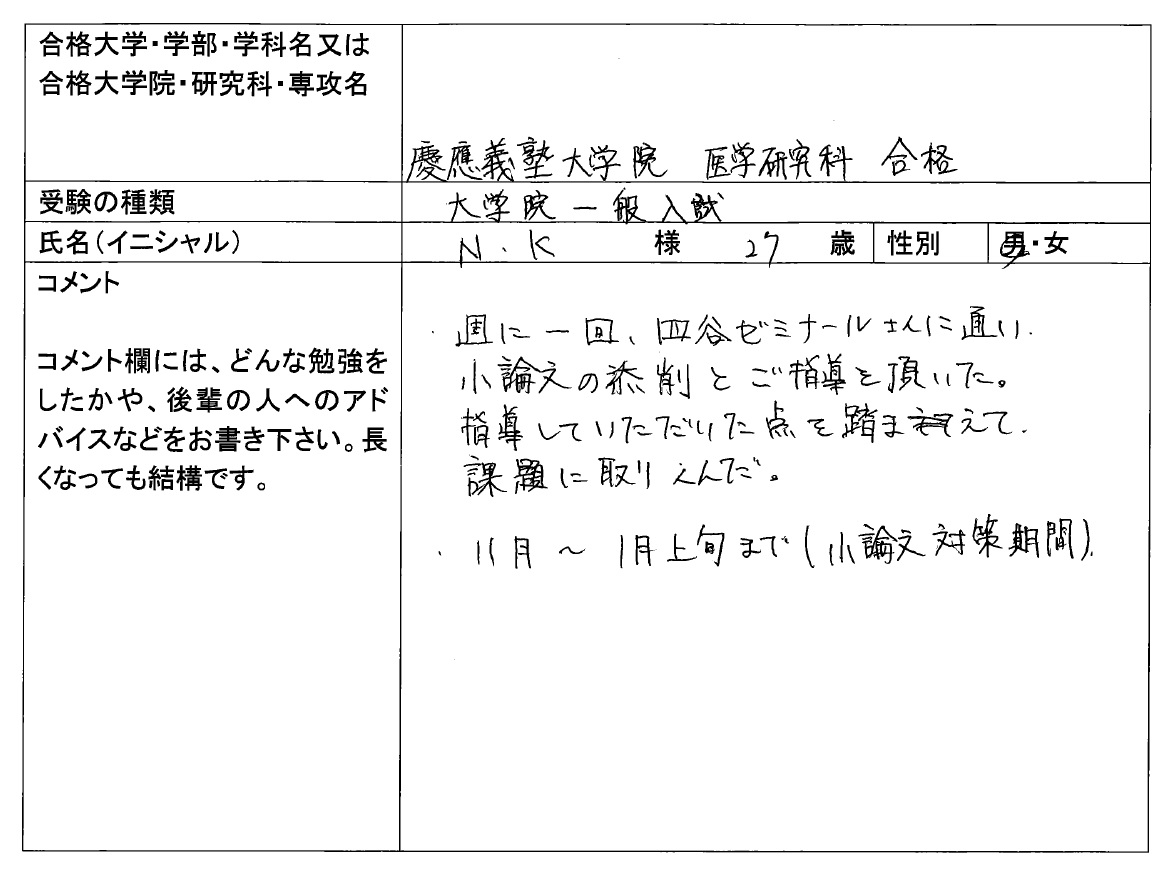 合格大学・学部・学科名又は
合格大学院・研究科・専攻名
慶應義塾大学院 医学研究科 合格
受験の種類 大学院 一般入試
氏名（イニシャル） N.K 様 27 歳 性別 男・女
コメント
コメント欄には、どんな勉強を
したかや、後輩の人へのアド
バイスなどをお書き下さい。長
くなっても結構です。
・週に一回、四谷ゼミナールさんに通い、
小論文の添削とご指導を頂いた。
指導していただいた点を踏まえて、
課題に取りくんだ。
・11月〜1月上旬まで(小論文対策期間).